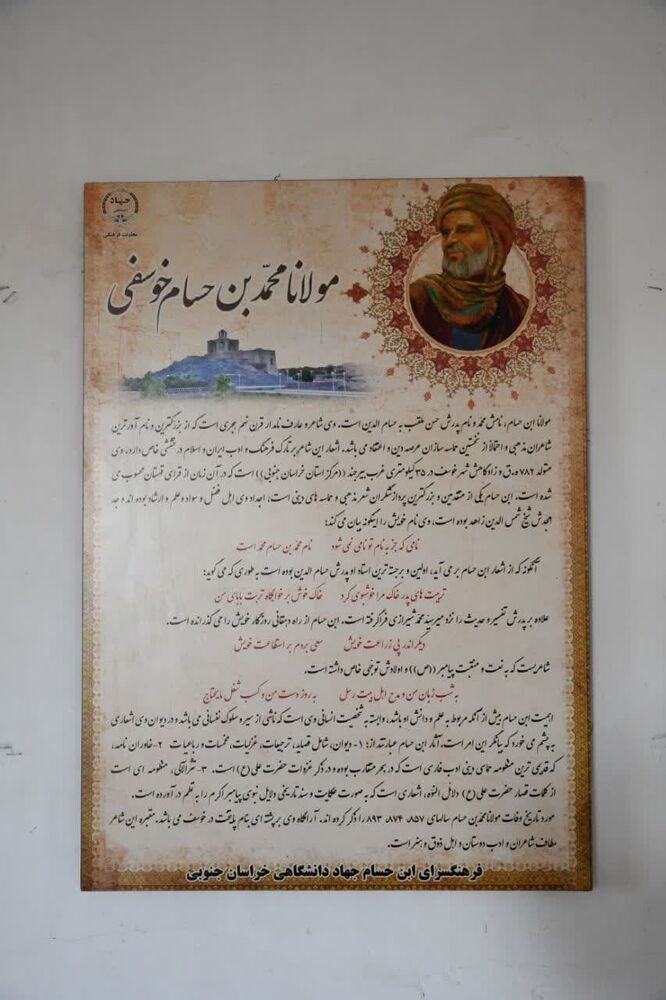 جهاد
معاونت فرهنگی
مولانا محمّد بن حسام خوسفی
مولانا ابن حسام، نامش محمد و نام پدرش حسن ملقب به حسام الدین است. وی شاعر و عارف نامدار قرن نهم هجری است که از بزرگترین و نام آورترین
شاعران مذهبی و احتمالاً از نخستین حماسه سازان عرصه دین و اعتقاد می باشد. اشعار این شاعر بر تارک فرهنگ و ادب ایران و اسلام درخششی خاص دارد، وی
متولد ۷۸۲ ه.ق و زادگاهش شهر خوسف در ۳۵ کیلومتری غرب بیرجند ((مرکز استان خراسان جنوبی)) است که در آن زمان از قرای قهستان محسوب می
شده است. ابن حسام یکی از متقدمین و بزرگترین پردازشگران شعر مذهبی و حماسه های دینی است، اجداد وی اهل فضل و سواد و علم و ارشاد بوده اند و جد
امجدش شیخ شمس الدین زاهد بوده است، وی نام خویش را اینگونه بیان می کند:
نامی که جز به نام تو نامی نمی شود نام محمد بن حسام محمد است
آنگونه که از اشعار ابن حسام بر می آید، اولین و برجسته ترین استاد او پدرش حسام الدین بوده است به طوری که می گوید:
تربیت های پدر خاک مرا خوشبوی کرد خاک خوش بر خوابگاه تربت بابای من
علاوه بر پدرش تفسیر و حدیث را نزد میر سید محمد شیرازی فرا گرفته است. ابن حسام از راه دهقانی روزگار خویش را می گذرانده است.
دیگر اندر پی زراعت خویش سعی بردم بر استطاعت خویش
شاعریست که به نعت و منقبت پیامبر ((ص)) و اولادش توجهی خاص داشته است.
به شب زبان من و مدح اهل بیت رسل به روز دست من و کسب شغل مایحتاج
اهمیت ابن حسام بیش از آنکه مربوط به علم و دانش او باشد، وابسته به شخصیت انسانی وی است که ناشی از سیر و سلوک نفسانی می باشد و در دیوان وی اشعاری
به چشم می خورد که بیانگر این امر است. آثار ابن حسام عبارتند از: ۱- دیوان، شامل قصاید، ترجیعات، غزلیات، مخمسات و رباعیات ۲- خاوران نامه،
که قدیمی ترین منظومه حماسی دینی ادب فارسی است که در بحر متقارب بوده و در ذکر غزوات حضرت علی(ع) است. ۳- نثراللآلی، منظومه ای است
از کلمات قصار حضرت علی(ع) دلائل النبوه، اشعاری است که به صورت حکایت و سند تاریخی دلایل نبوی پیامبر اکرم را به نظم در آورده است.
مورد تاریخ وفات مولانا محمد بن حسام سالهای ۸۵۷، ۸۷۴، ۸۹۳ را ذکر کرده اند. آرامگاه وی بر پشته ای بنام پایتخت در خوسف می باشد. مقبره این شاعر
مطاف شاعران و ادب دوستان و اهل ذوق و هنر است.
فرهنگسرای ابن حسام جهاد دانشگاهی خراسان جنوبی